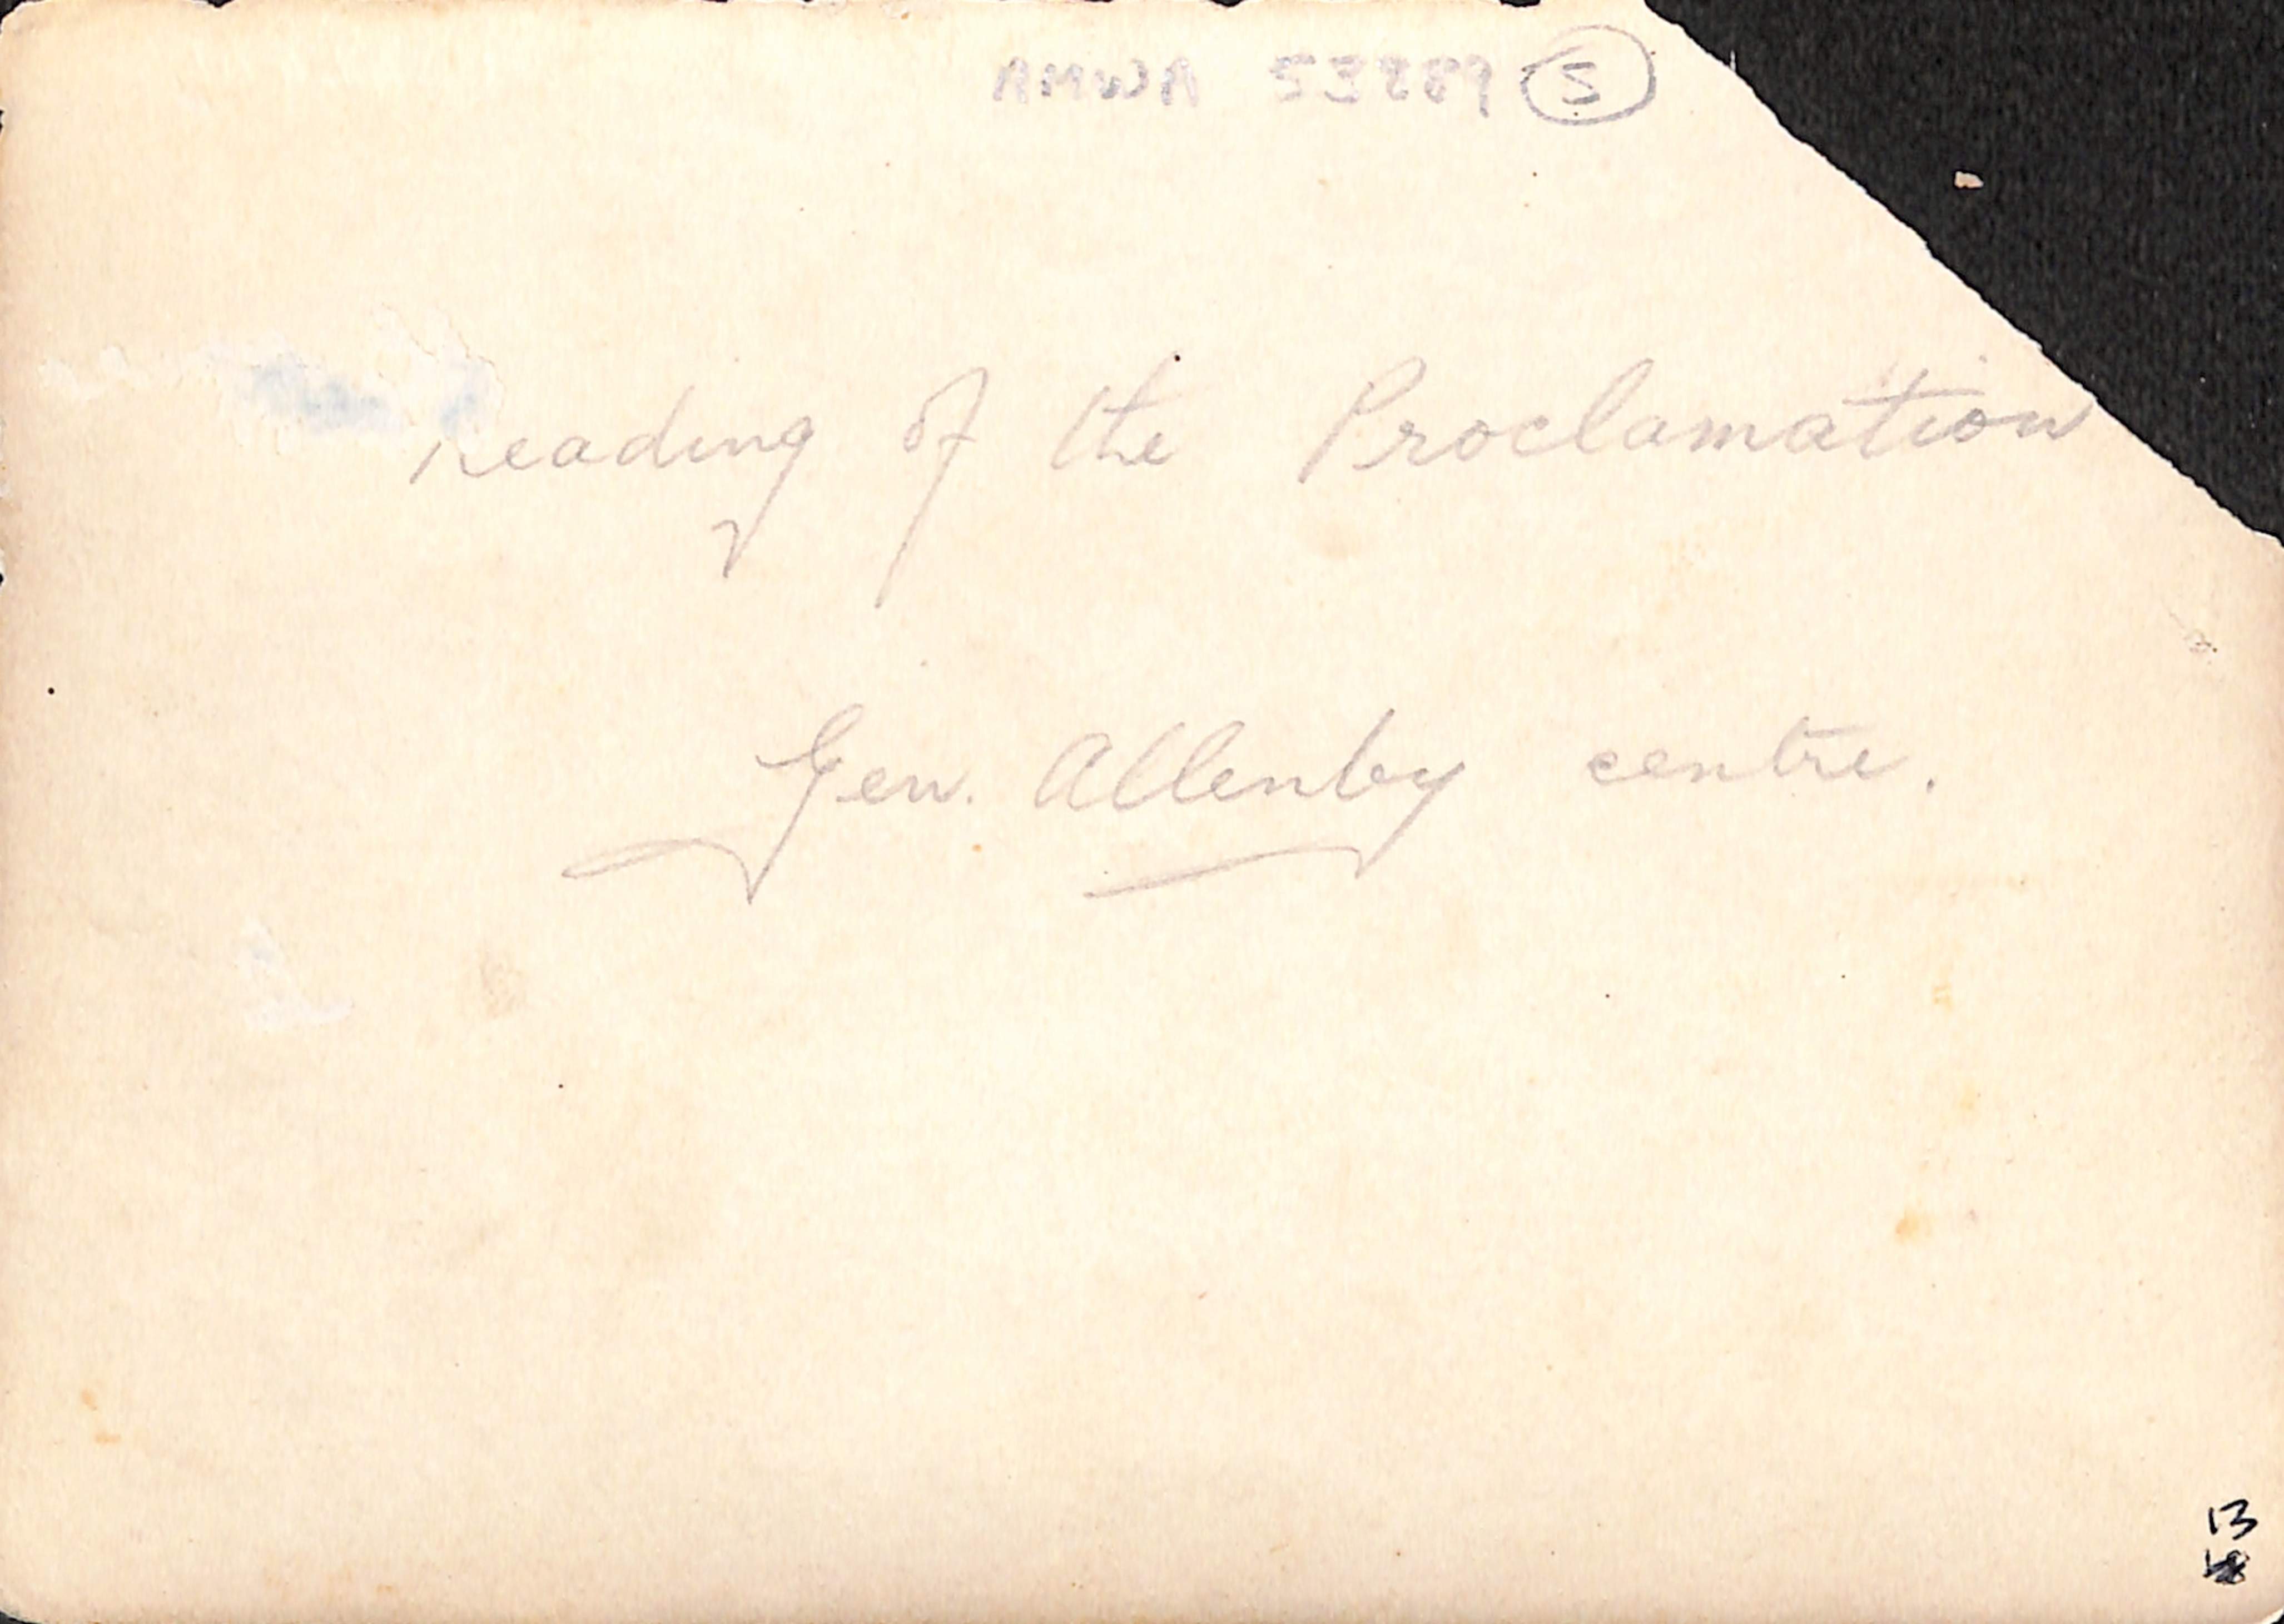 AMWA 53889 5
Reading of the Proclamation
Gen. Allenby centre.
13